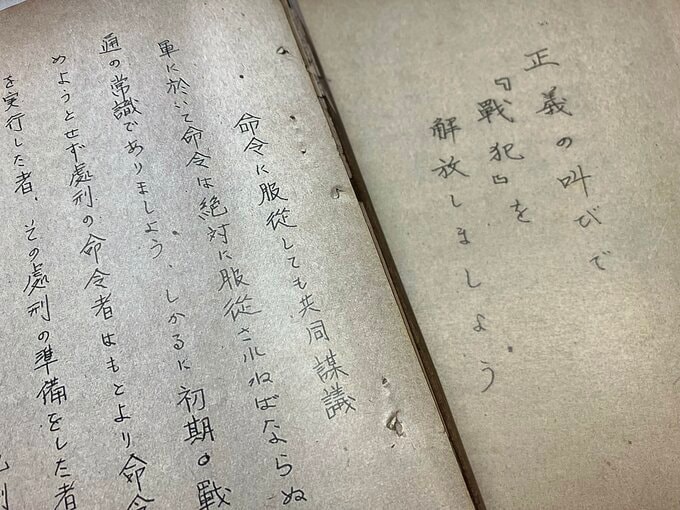 正義の叫びで
『戰犯』を
解放しましょう
命令に服從しても共同謀議
軍に於いて命令は絶対に服從されねばならぬ
通の常識でありましょう。しかるに初期の戰
めようとせず處刑の命令者はもとより命令
を実行した者、その處刑の準備をした者